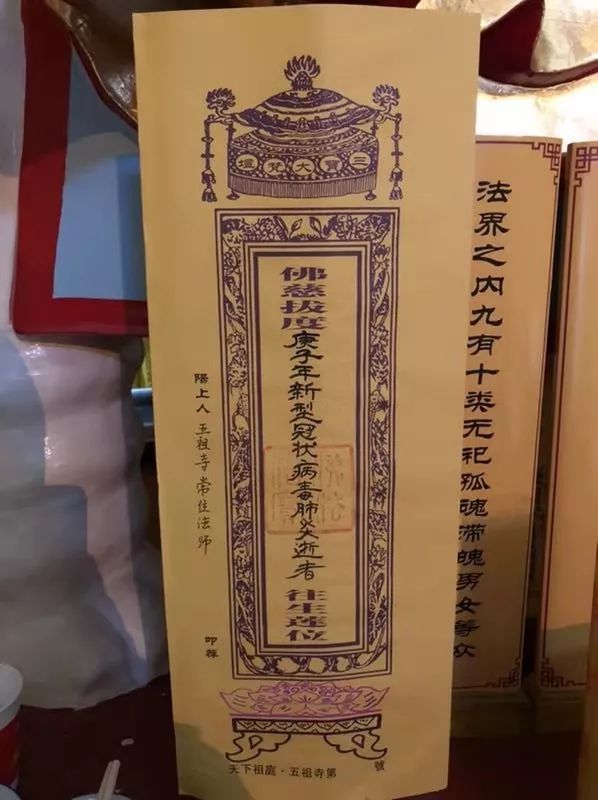 三寶大梵壇
佛慈拔度庚子年新型冠状病毒肺炎逝者往生莲位
陽上人 五祖寺 常住法师 叩荐
天下祖庭·五祖寺第 號
法界之内九有十类无祀孤魂滞魄男女等众